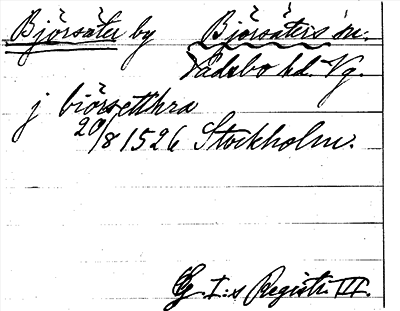 Björsäter by Björsäters sn.
Vadsbo hd. Vg.
j biörsetthra
20/8 1526 Stockholm.
G I:s Registr. III.